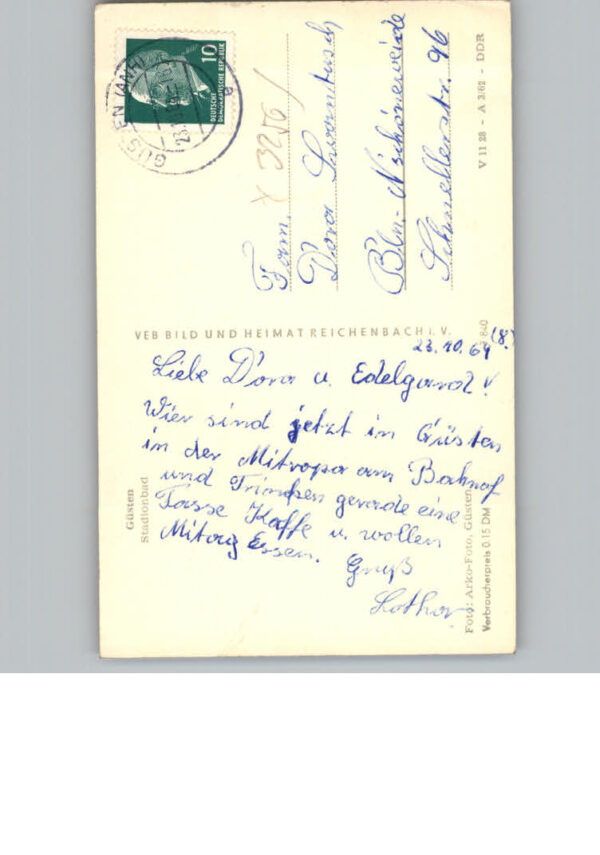 GÜSTEN (ANH)
10
DEUTSCHE
DEMOKRATISCHE REPUBLIK
Fam.
Dora
Bln.-N'schöneweide
Schnellerstr. 96
V 11 28 - A 3/62 - DDR
VEB BILD UND HEIMAT REICHENBACH I. V.
23.10.64
Liebe Dora u. Edelgard!
Wier sind jetzt in Güsten
in der Mitropa am Bahnof
und Trinken gerade eine
Tasse Kaffe u. wollen
Mitag Essen.
Gruß
Lothar
Güsten
Stadionbad
Foto: Arko-Foto, Güsten
Verbraucherpreis 0.15 DM